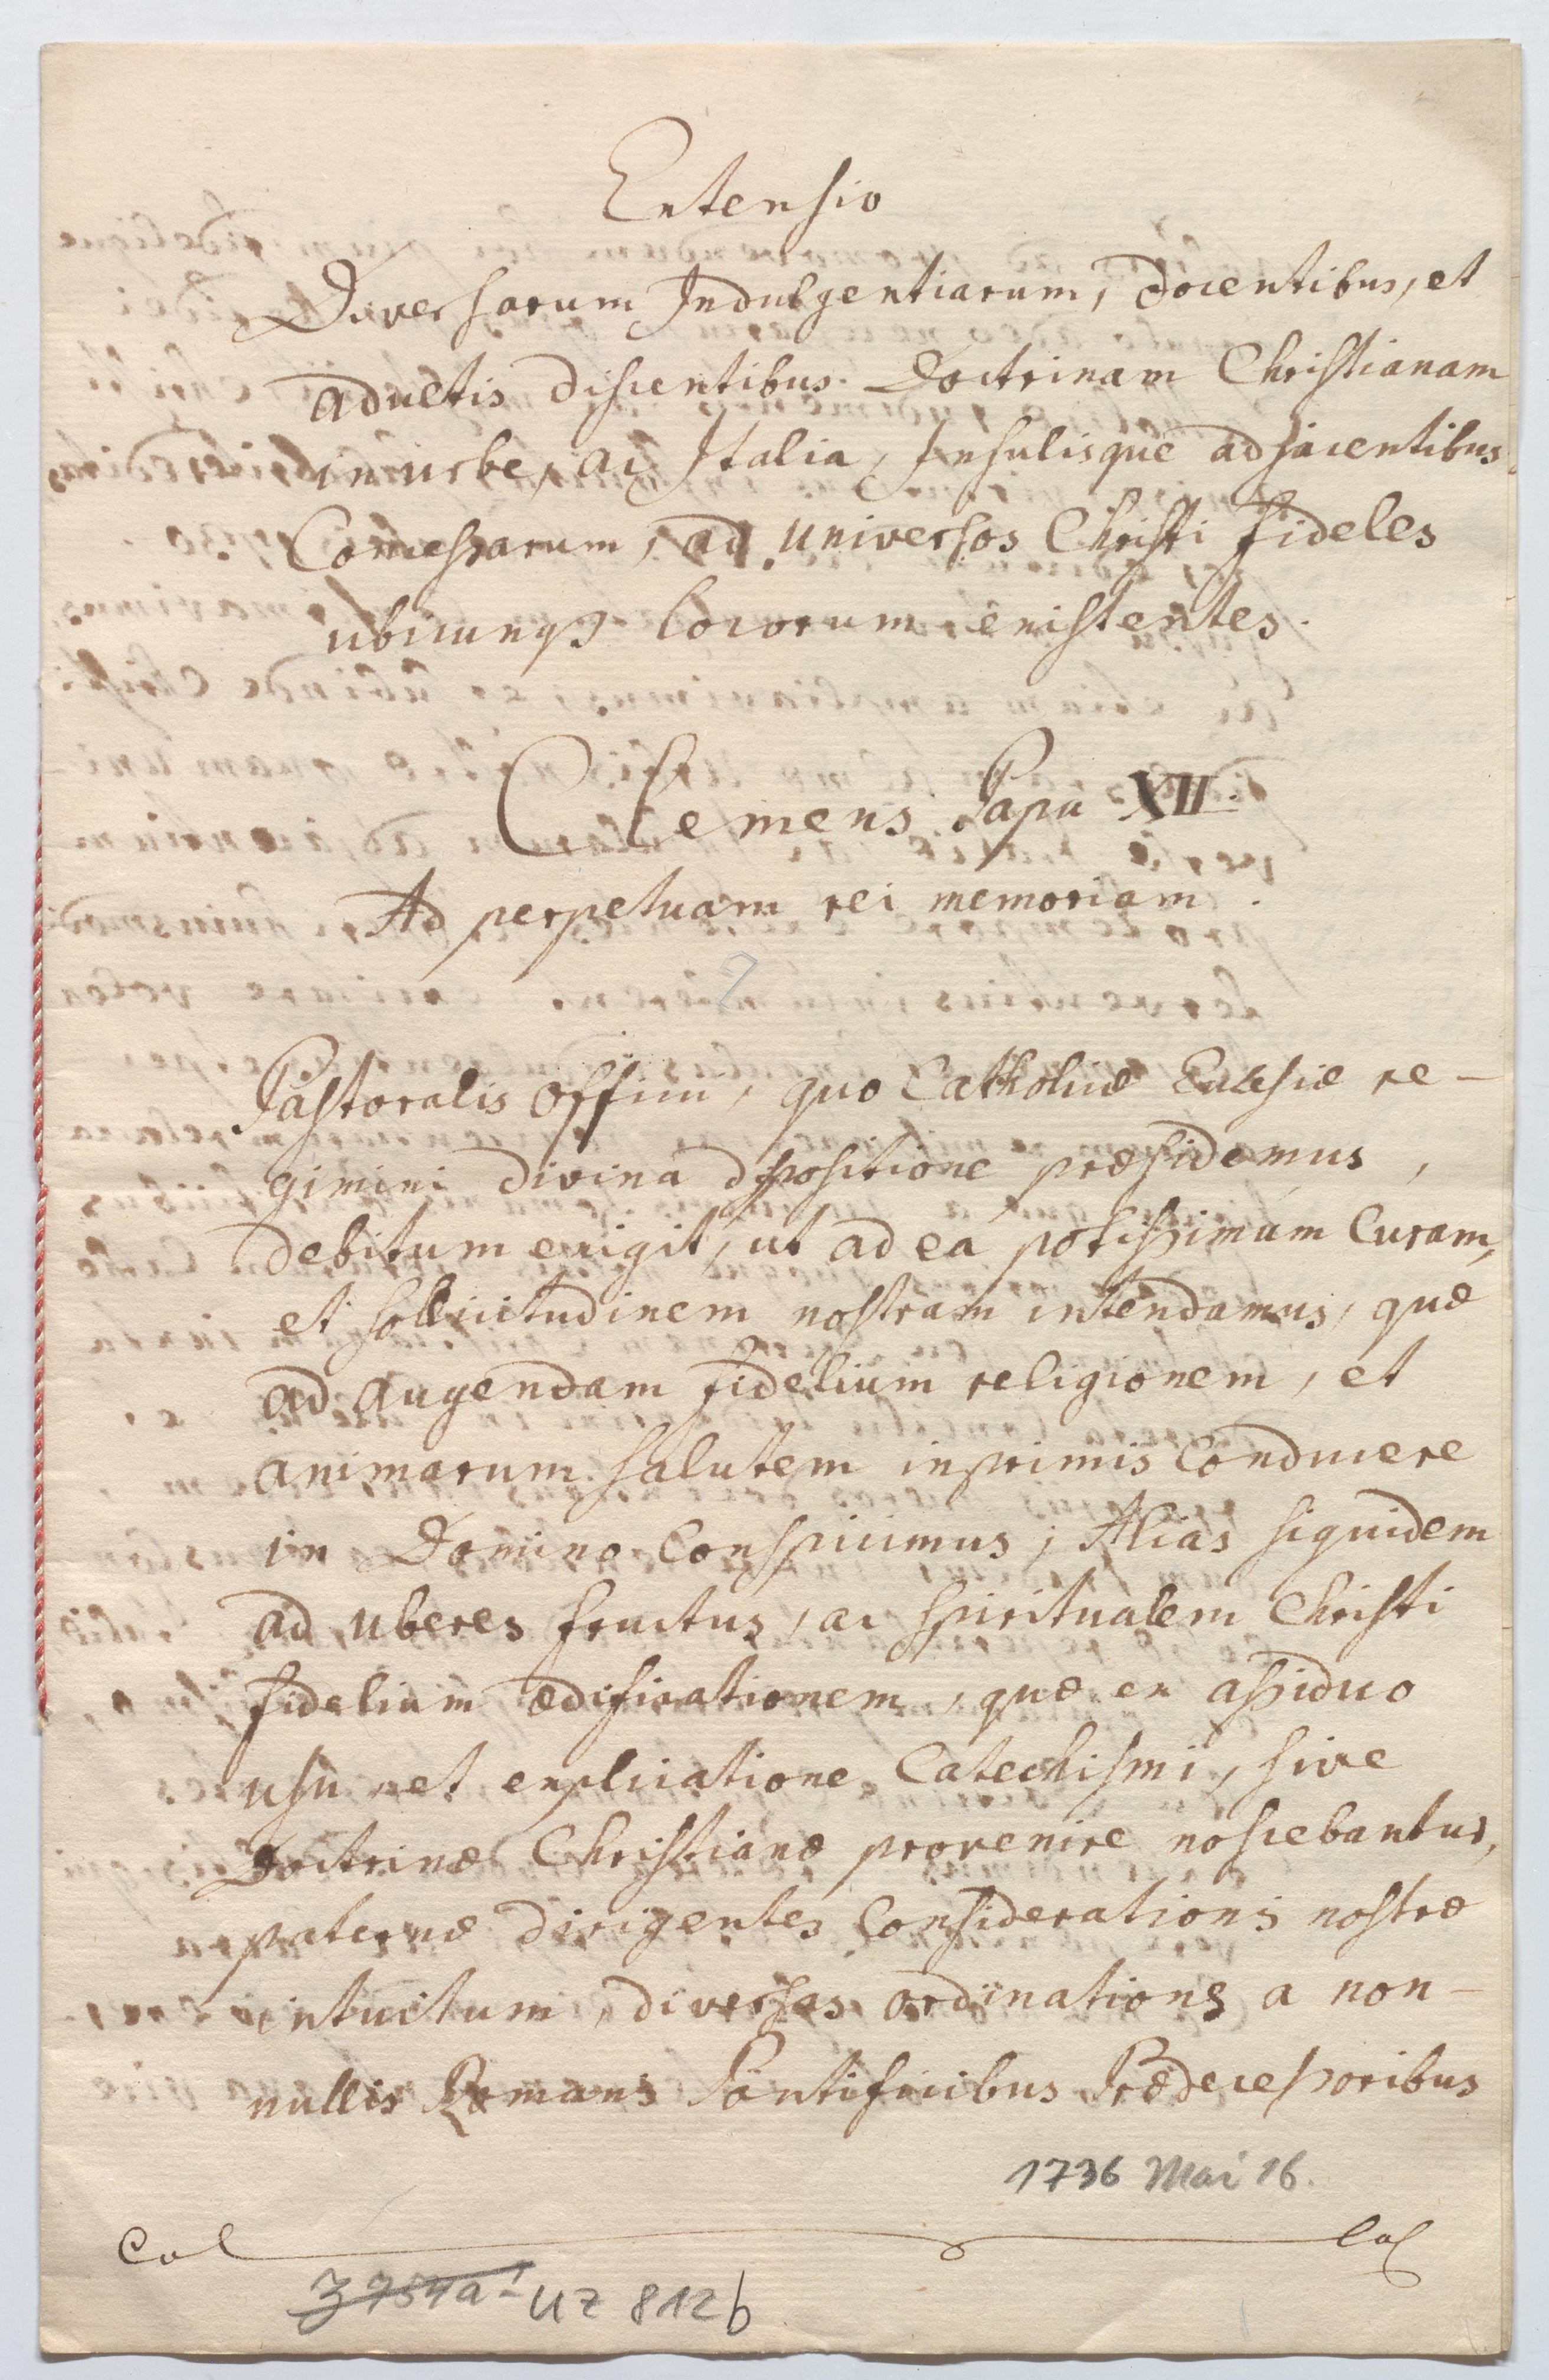 Extensio
Diversarum Indulgentiarum, docentibus, et
aductis discentibus Doctrinam Christianam
in urbe, ac Italia, Insulisque adjacentibus
Concessarum, ad universos Christi fideles
ubicunqз locorum existentes.
Clemens Papa XII.
Ad perpetuam rei memoriam.
Pastoralis officii, quo Catholicæ Ecclesiæ re-
gimini divina dispositione præsidemus,
debitum exigit, ut ad ea potissimum Curam,
et sollicitudinem nostram intendamus, quæ
ad augendam fidelium religionem, et
animarum salutem inprimis Conducere
in Domino Conspicimus; Alias siquidem
ad uberes fructus, ac spiritualem Christi
fidelium ædificationem, quæ ex assiduo
usu, et explicatione Catechismi, sive
Doctrinæ Christianæ provenire noscebantur,
paternæ dirigentes Considerationis nostræ
intuitum, diversas ordinationes a non-
nullis Romanis Pontificibus Prædecessoribus
1736 Mai 16.
Col Col
Z 754a UZ 812b